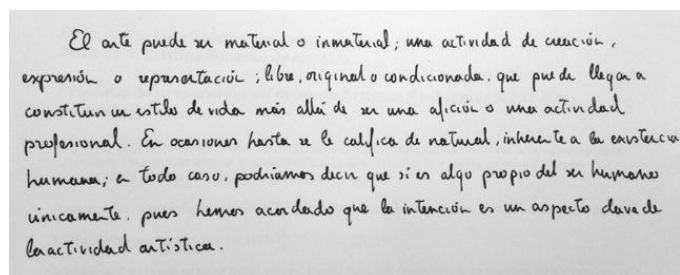 El arte puede ser material o inmaterial; una actividad de creación,
expresión o representación; libre, original o condicionada, que puede llegar a
constituir un estilo de vida más allá de ser una afición o una actividad
profesional. En ocasiones hasta se le califica de natural, inherente a la existencia
humana; en todo caso, podríamos decir que sí es algo propio del ser humano
únicamente, pues hemos acordado que la intención es un aspecto clave de
la actividad artística.